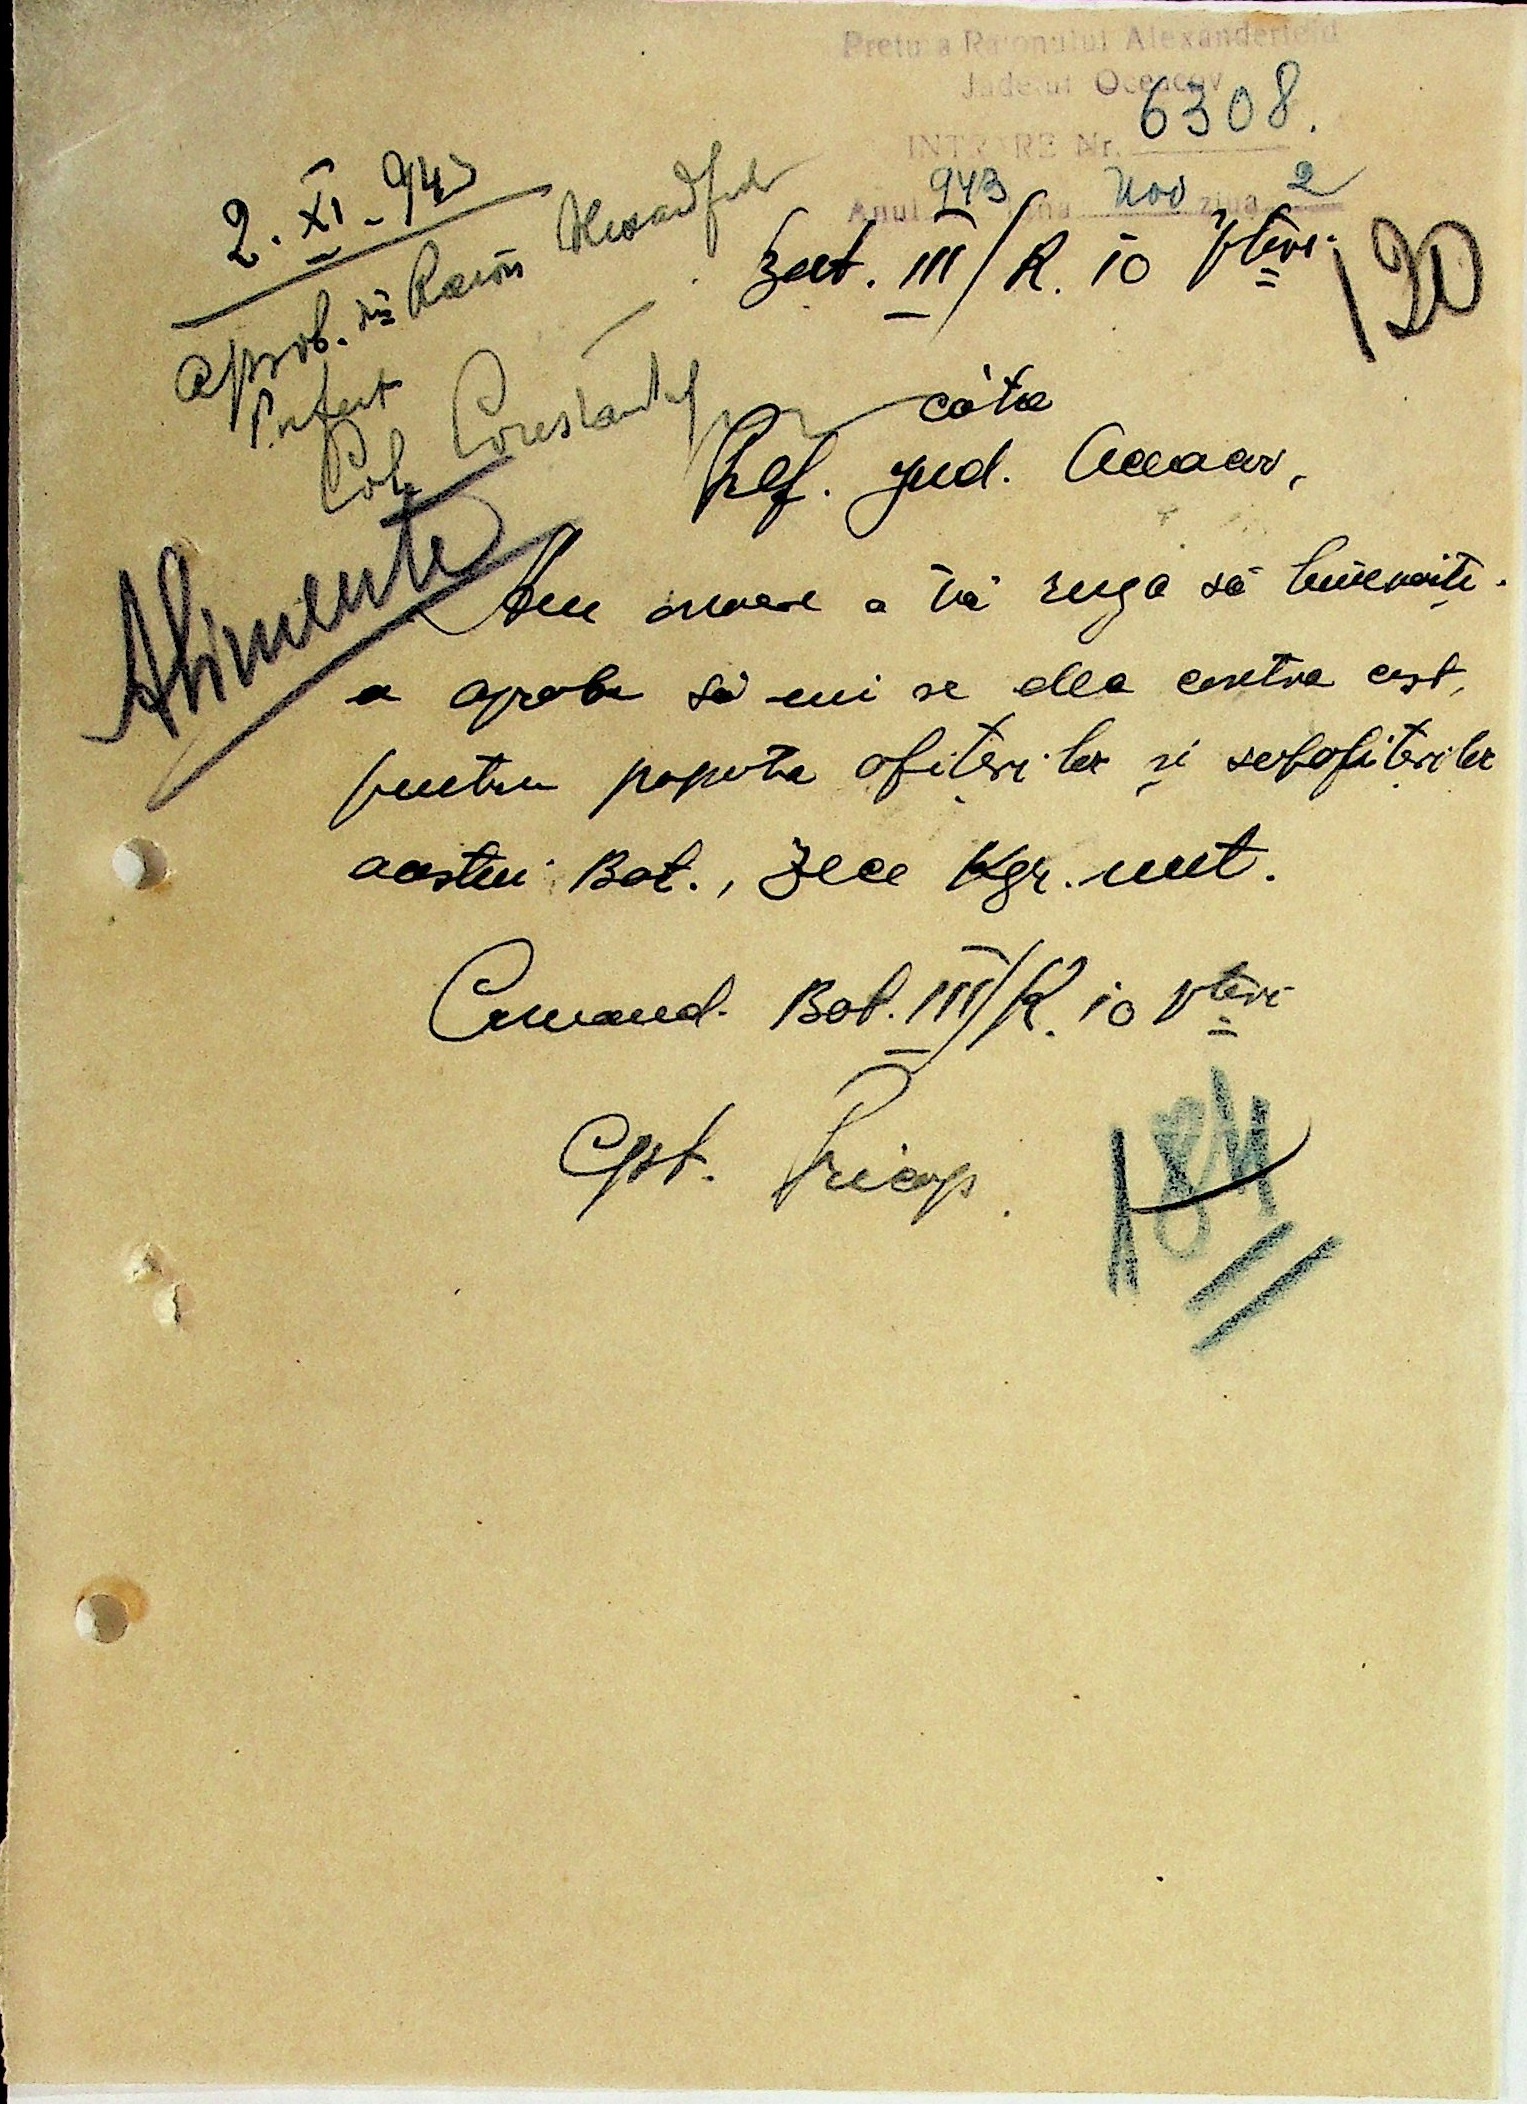 Pretura Raionului Alexanderfeld
Județul Oceacov
INTRARE Nr. 6308.
Anul 943 Luna Nov ziua 2
2. XI. 943
aprob. din Raion Alexandfeld
Prefect
Col.
Bat. III/R. 10 Vtori
120
către
Pref. Jud. Oceacov,
Alimente
Am onoare a Vă ruga să binevoiți
a aproba să mi se dea contra cost,
pentru popota ofițerilor și subofițerilor
acestui Bat., zece Kgr. unt.
Comand. Bat. III/R. 10 Vtori
Cpt. Pricop.
184